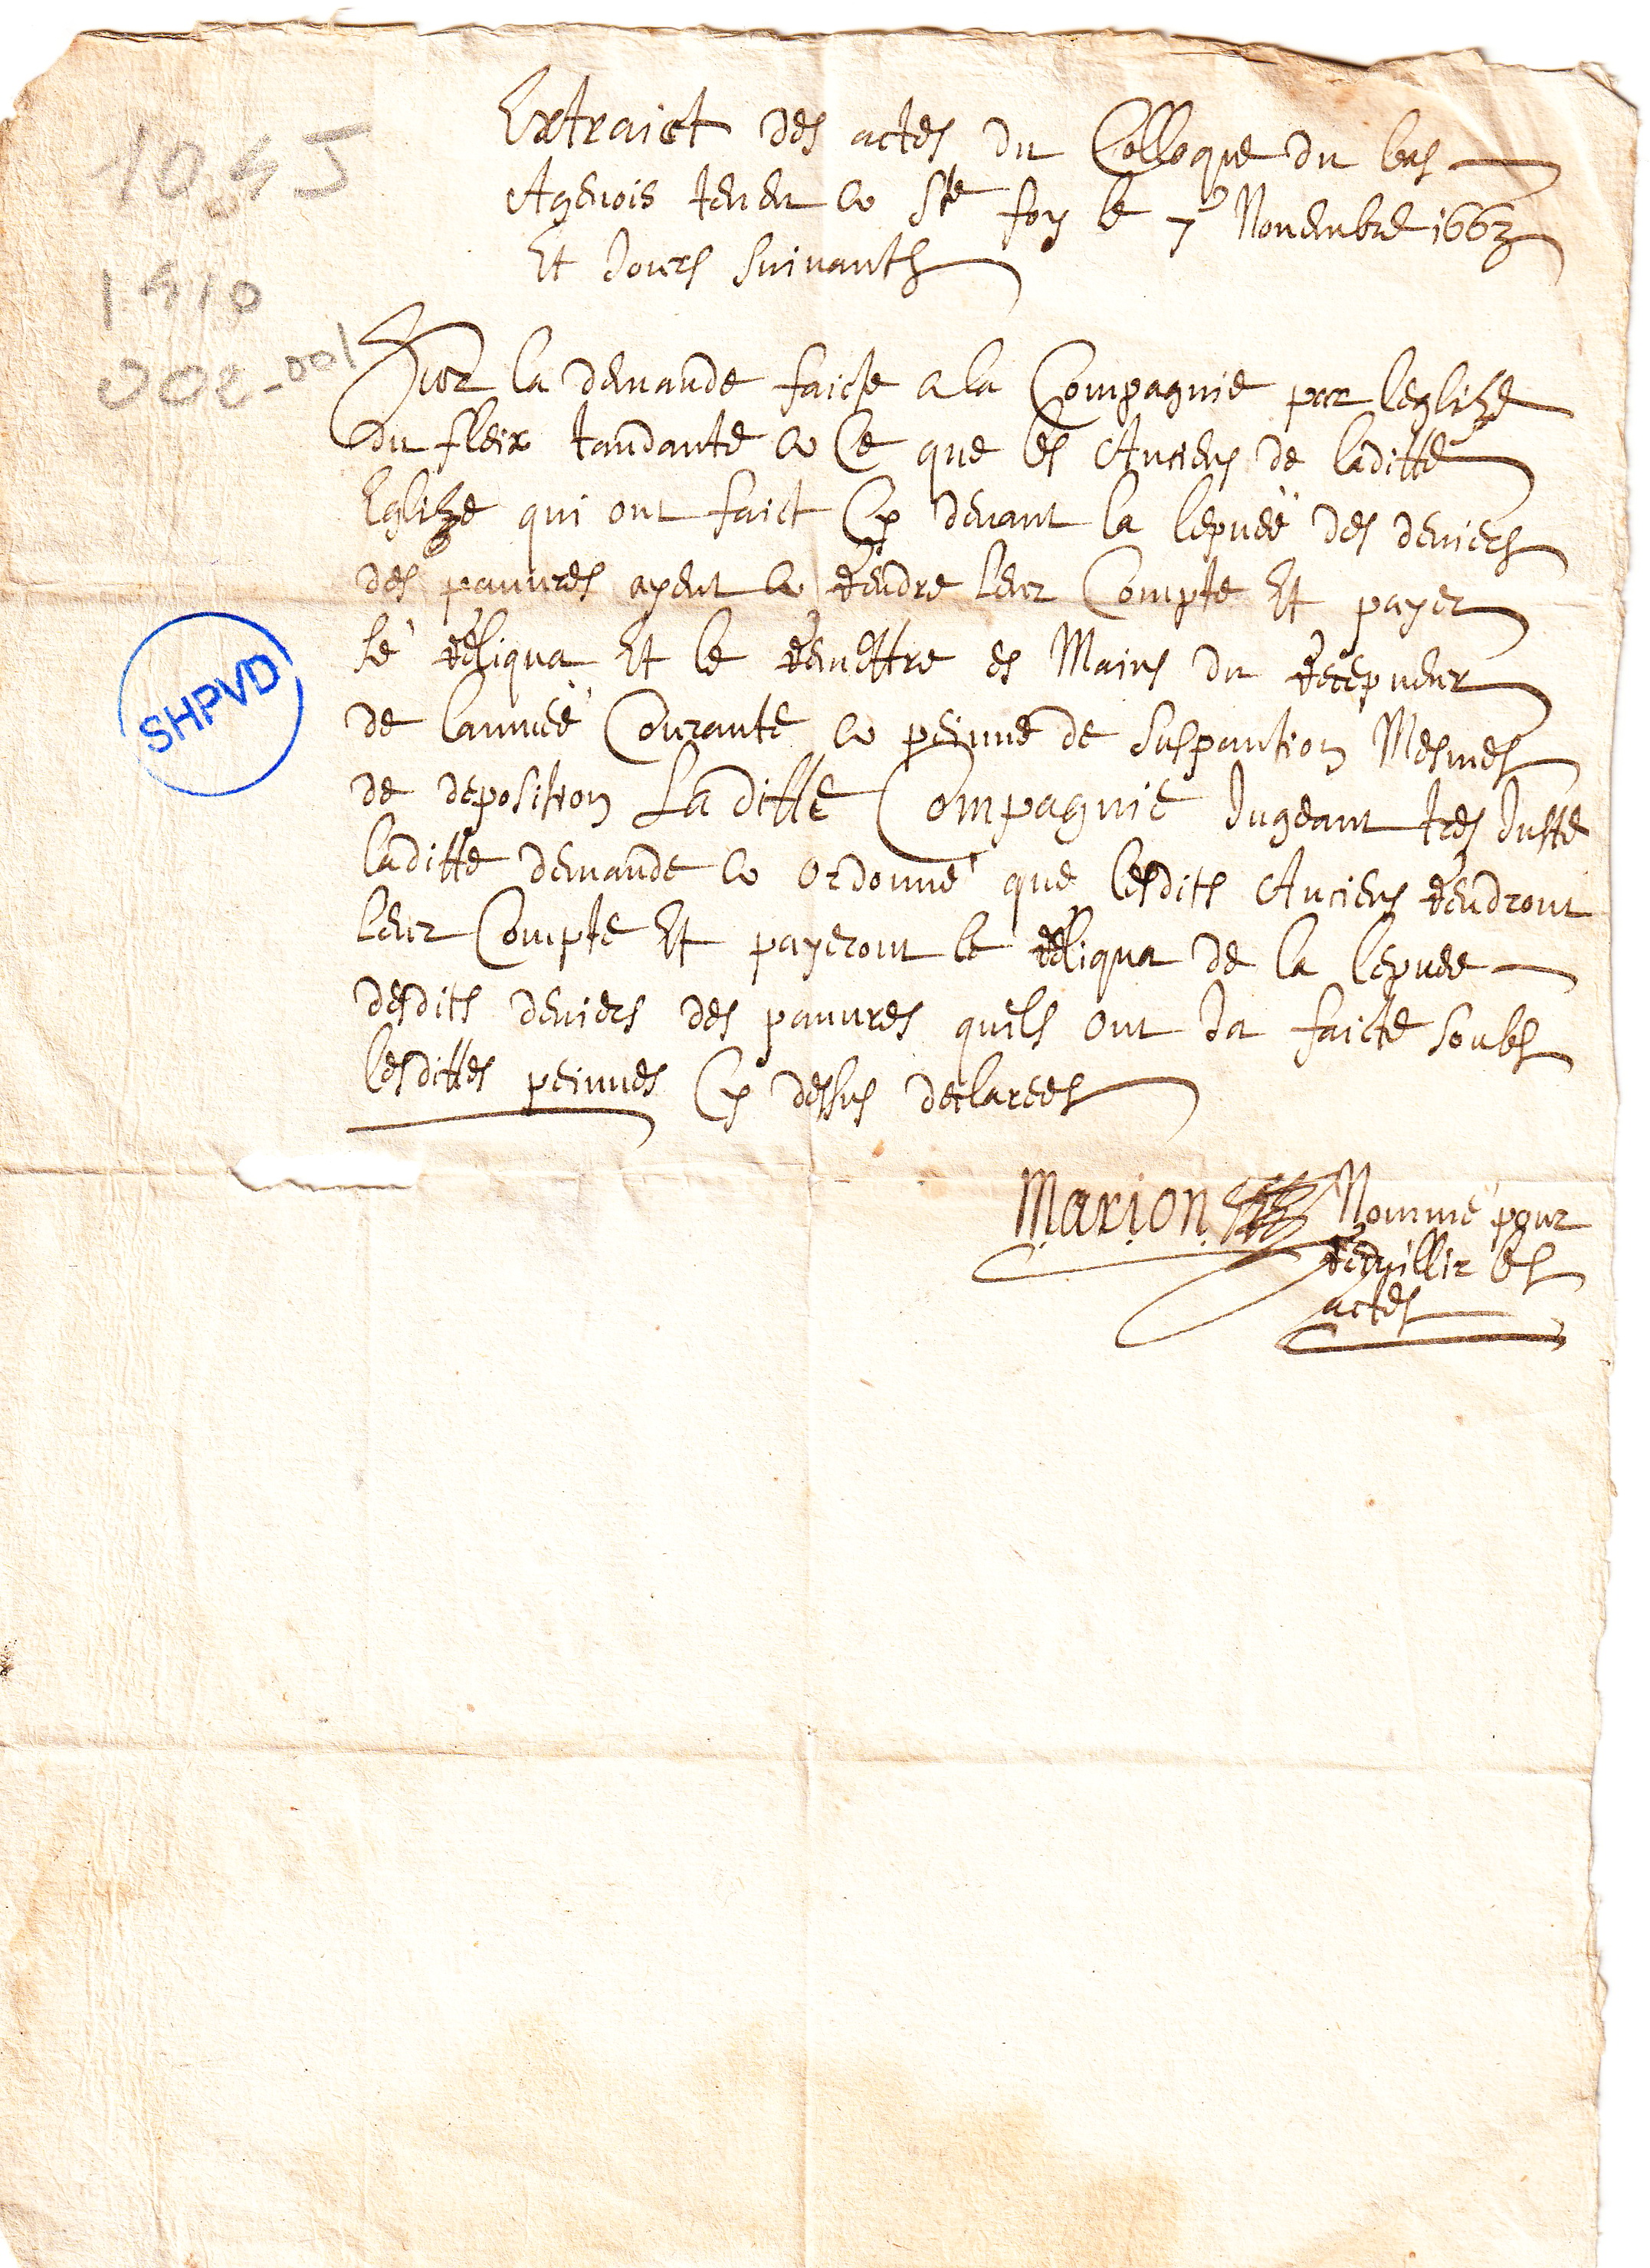 10.4J
1410
002-001
Extraict des actes du Colloque du bas
Agenois teneu a Ste foy le 7e Novembre 1663
Et Jours suivants
Sur la demande faicte a la Compagnie par leglize
du fleix tandante a Ce que les Anciens de laditte
Eglize qui ont faict Cy devant la lepveë des deniers
des pauvres ayent a rendre leur Compte Et payer
le reliqua Et le remettre es Mains du recepveur
de lanneé Courante a peinne de suspantion Mesmes
de deposition La ditte Compagnie Jugeant tres Juste
laditte demande a ordonné que lesdits Anciens rendront
leur Compte Et payeront le reliqua de la lepvee
desdits deniers des pauvres quils ont Ja faicte soubs
lesdittes peinnes Cy dessus declarees
SHPVD
Marion Nommé pour
recuillir les
actes